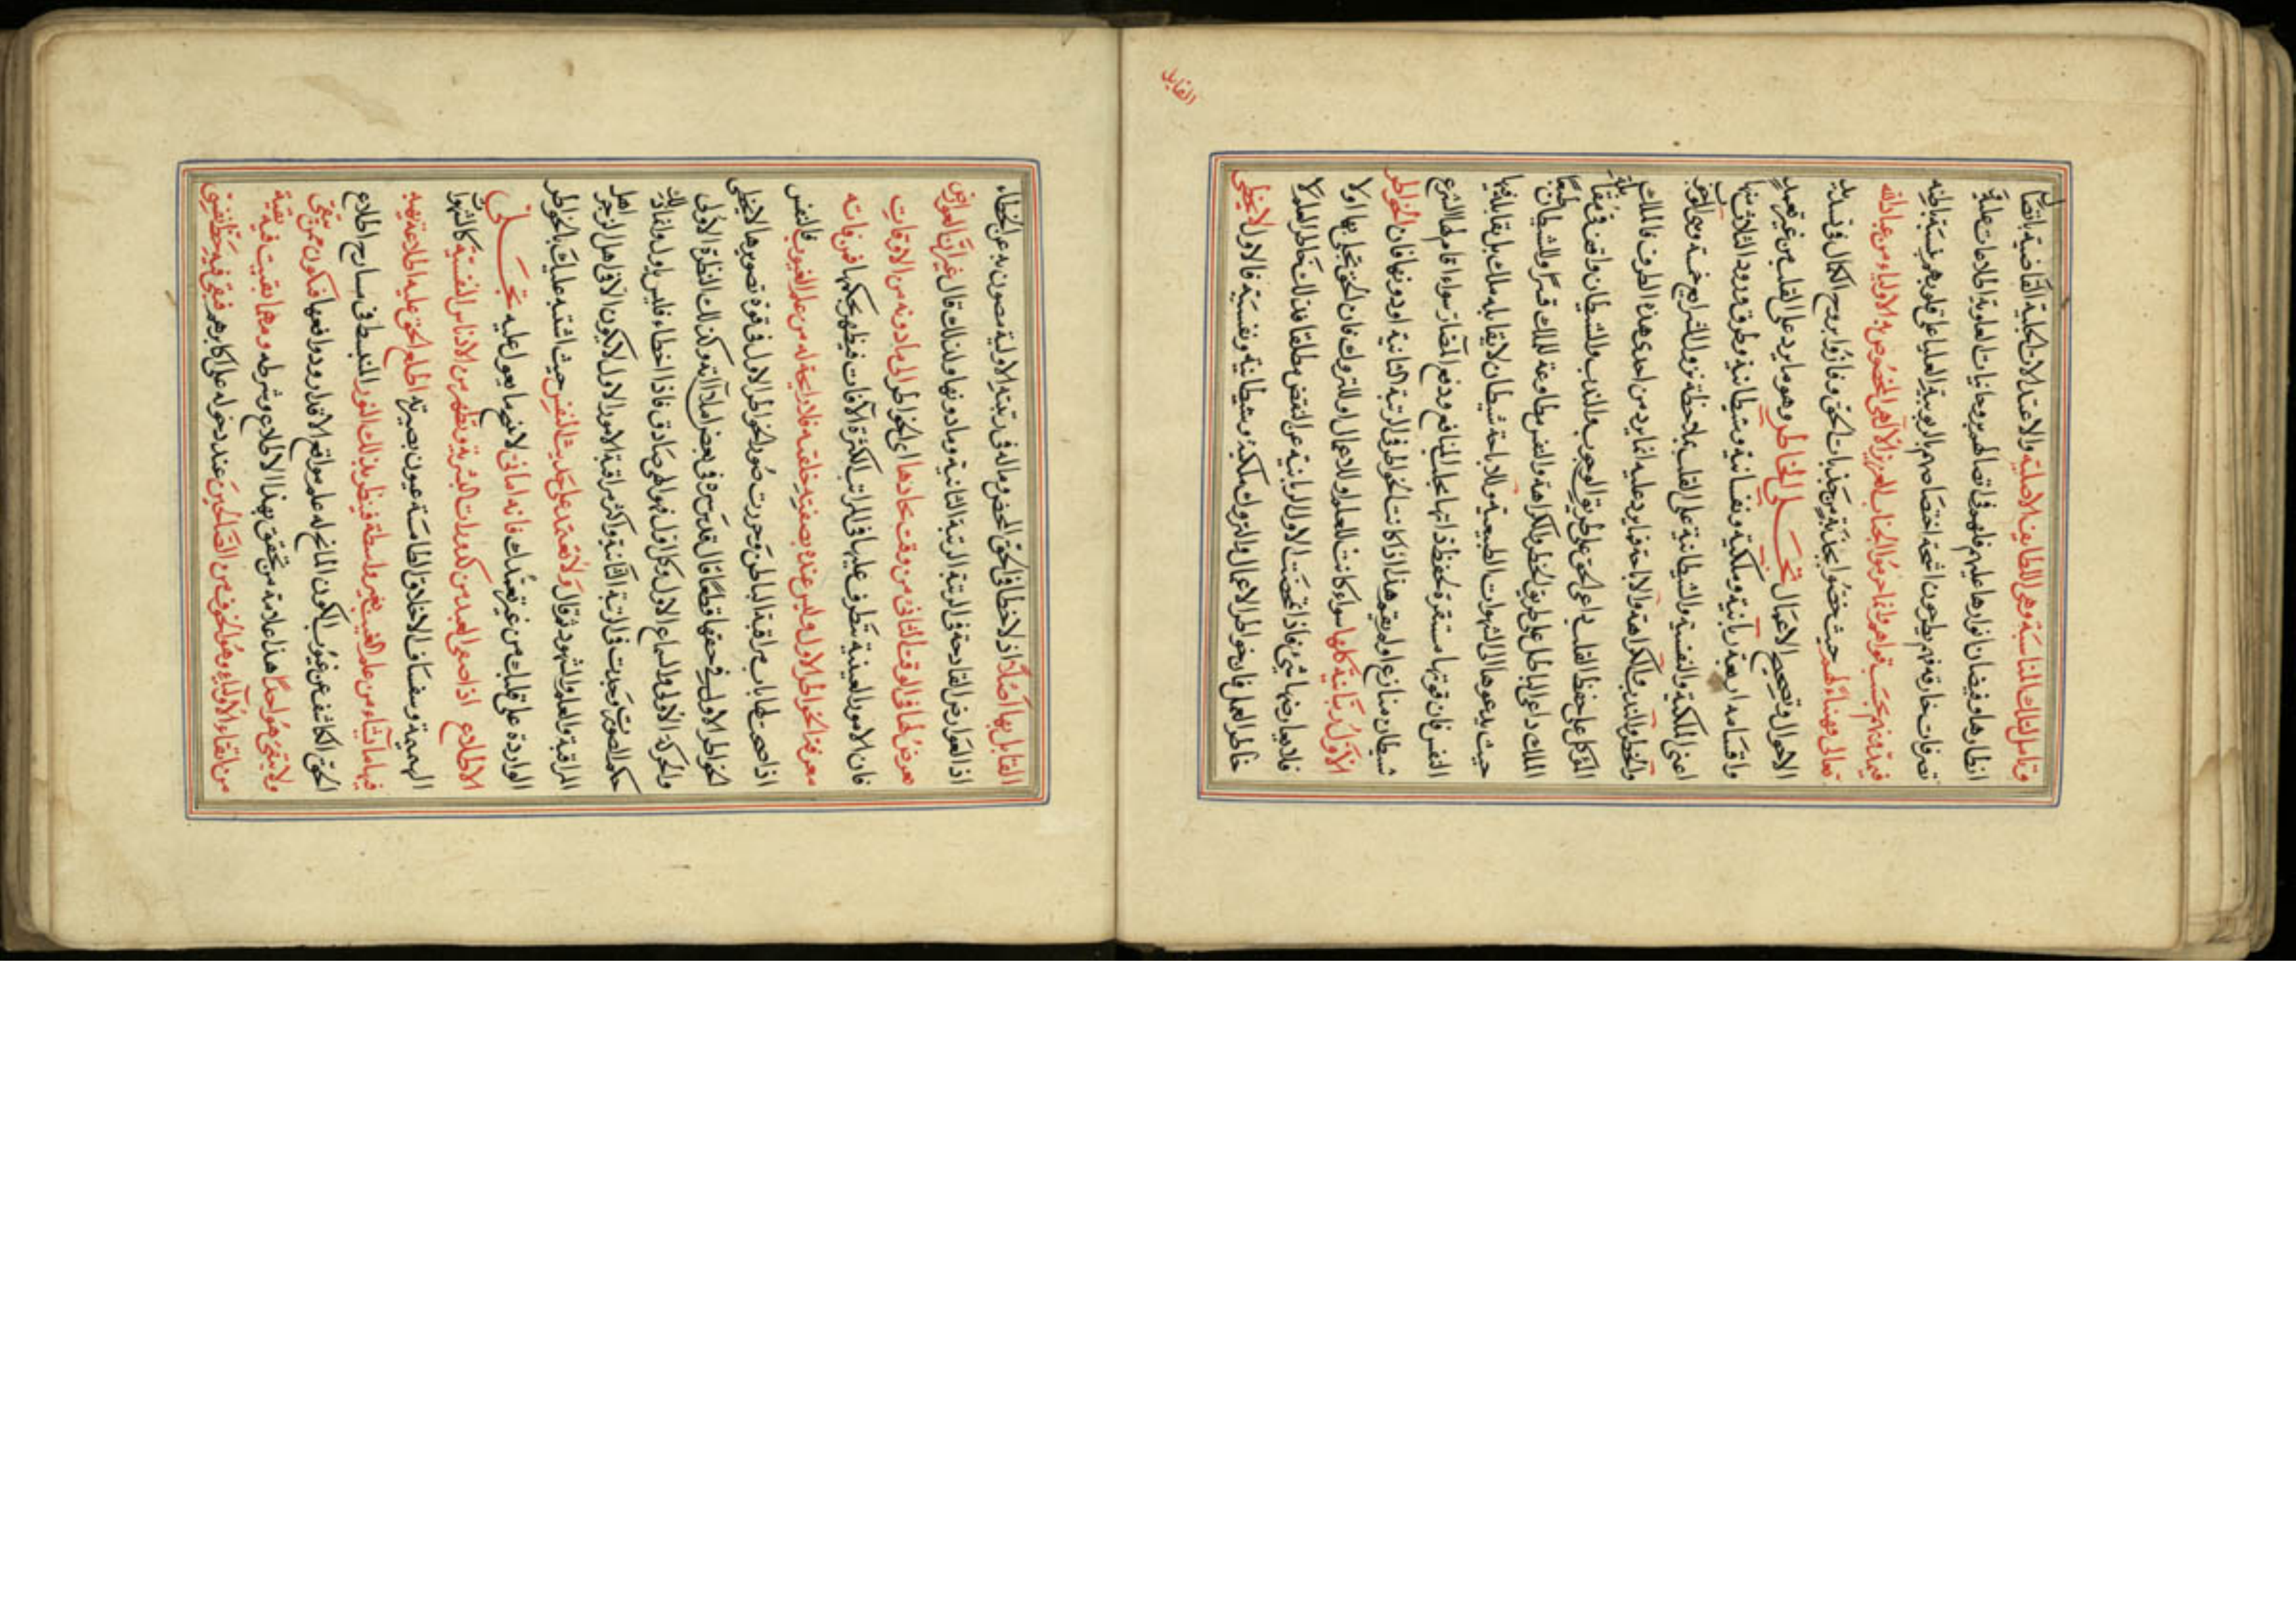 وتامل تلك المناسبة وهى للطايفة الاصلية والاعتدالات الجلية القاضية باتصال
انظارها وفيضان انوارها عليهم فلهم فى اتصالهم بروحانيات العلوية اطلاعات علية و
تصرفات خارقة فهم يطرحون اشعة اختصاصهم بالربوبية العليا على قلوبهم بنسبة باطنه
فيمدهم بحسب قوابلهم وانما حرموا الجناب العزيز الالهى المخصوص به الاولياء من عباد الله
تعالى فهنيئا لهم حيث خصوا بجذبة من جذبات الحق وفازوا بروح الكمال
الاحوال وتصحيح الاعمال تجلى الخاطر وهو ما يرد على القلب من غير تعمد
واقسامه اربعة ربانية وملكية ونفسانية وشيطانية وطرق ورود الثلاثة منها
اعنى الملكية والنفسية والشيطانية على القلب بملاحظة نزول الشرايع خمسة وهى الوجوب
والحظر والندب والكراهة والاباحة فما يرد عليه انما يرد من احدى هذه الطرق فالملك
الموكل على حفظ القلب داعى الحق على طريق الوجوب والندب والشيطان واقف فى مقابلة
الملك داعى الباطل على طريق الحظر والكراهة والنفس مطاوعة للملك قسرا وللشيطان طبعا
حيث يدعوها الى الشهوات الطبيعية وللاباحة شيطان لا يقابله ملك بل تقابله فيها
النفس فان قوتها مستقرة لحفظ ذاتها بجلب المنافع ودفع المضار سواء اقام لها الشرع
شيطان منازع اولم يقم هذا اذا كانت الخواطر فى الرتبة الثانية او دونها فان الخواطر
الاول ربانية كلها سواء كانت للعلم او للاعمال او للتروك فان الحق تجلى بها اولا
فلا يعارضها شئ فاذا تمحضت الاول الربانية عن النقض مطلقا فذلك خاطر العلم لا
خاطر العمل فان خواطر الاعمال والتروك ملكية وشيطانية ونفسية فالاول لا يخطى
القابل
القابل بها اصلا اذ لا خطا فى الحق المحض وماله فى رتبته الاولية مصون به عن الخطاء
اذ العوارض القادحة فى الرتبة الثانية وما دونها ولذلك قال غير ان العوارض
تعرض لها فى الوقت الثانى من وقت ايجادها اى الخواطر الى ما دونه من الاوقات
فان الامور العينية يتطرف عليها فى المراتب الكثرة الآفات فيظهر بحكمها فمن فاته
معرفة الخواطر الاول وليس عنده بصفته خلقه فلا رايحة له من علم الغيوب فالنفس
اذا صحت لها باب مراقبة الباطن وحررت صور الخواطر الاول فى قوة تصويرها لا يخطى
الخواطر الاول فى حقها قطعا قال قدس سره فى بعض املاآته وكذلك النظرة الاولى
والحركة الاولى والسماع الاول وكل اول فهو الهى صادق فاذا اخطاء فليس باول وانما ذلك
حكم الصورة وجدت فى الرتبة الثانية واكثر مراقبة الامور الاول لا يكون الا فى اهل الزجر
المراقبة والعلم والشهود ثم قال ولا تعتمد على حديث النفس حيث اشتبه عليك بالخواطر
الواردة على قلبك من غير تعمدك فانه امانى لا فيما يعول عليه تجلى
الاطلاع اذا صفى العبد من كدورات البشرية وتطهر من الادناس النفسية كالشهوات
البهيمية وسفساف الاخلاق الطامسة عيون بصيرته اطلع الحق عليه اطلاعة يهبه
فيها ما يشاء من علم الغيب بغير واسطة فينظر بذلك النور المنبسط فى مسارح اطلاع
الحق الكاشف عن غيوب الكون المانح له علم مواقع الاقدار ودوافعها فيكون ممن يتقى
ولا يتقى هو احدا هذا علامة من تحقق بهذا الاطلاع وشرطه ومهما بقيت فيه بقية
من اتقاء الاولياء وهو الخوف من الصالحين عند دخوله على اكابرهم فبقى فيه حظ نفسى